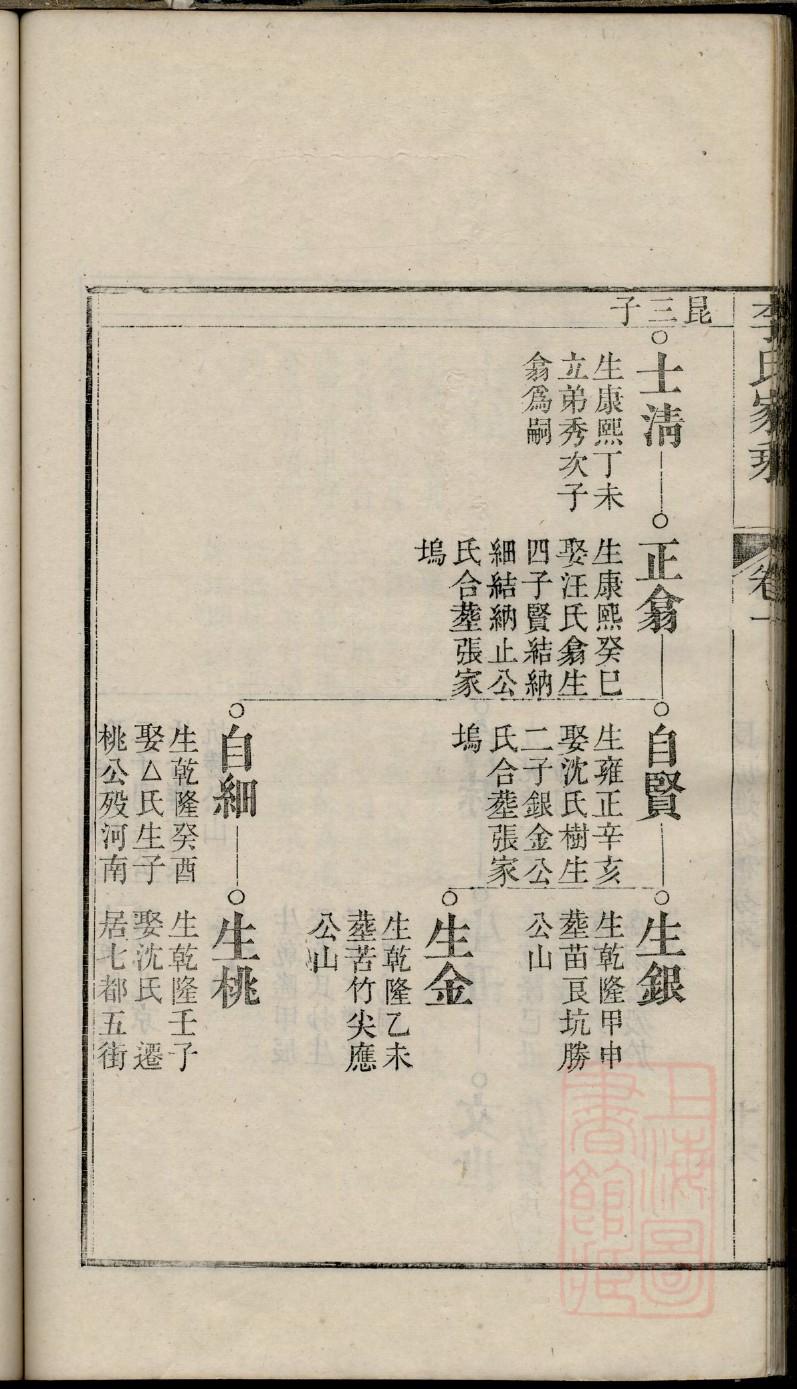 李氏家乘
卷一
昆三子
士清
生康熙丁未
立弟秀次子
翕爲嗣
正翕
生康熙癸巳
娶汪氏翕生
四子賢結納
細結納止公
氏合塟張家
塢
自賢
生雍正辛亥
娶沈氏樹生
二子銀金公
氏合塟張家
塢
生銀
生乾隆甲申
塟苗良坑勝
公山
生金
生乾隆乙未
塟苦竹尖應
公山
自細
生乾隆癸酉
娶厶氏生子
桃公殁河南
生桃
生乾隆壬子
娶沈氏 遷
居七都五街
上海圖
書館藏